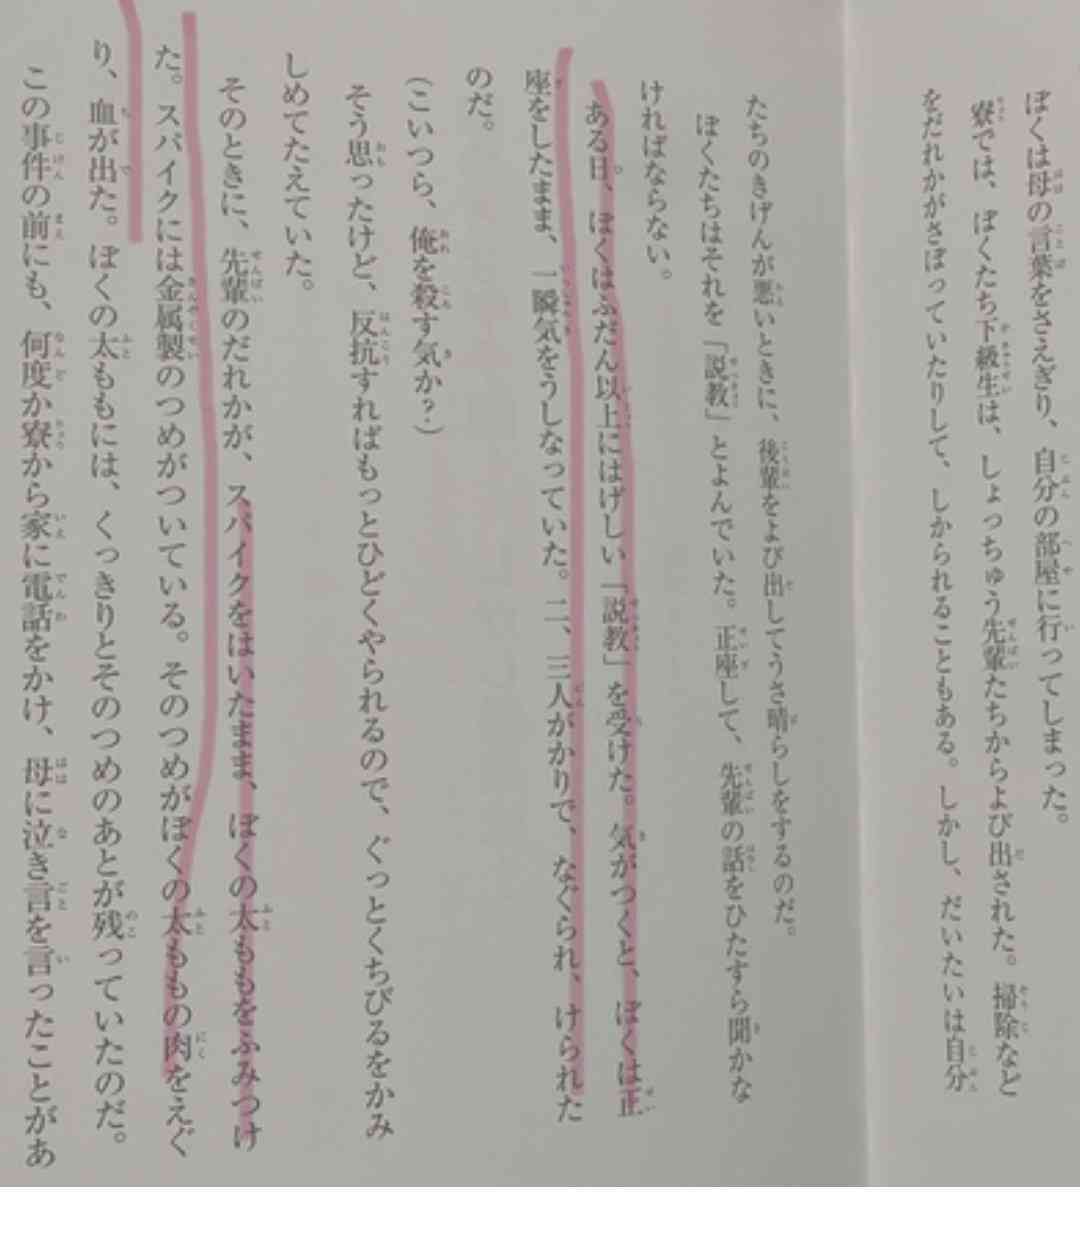 ぼくは母の言葉をさえぎり、自分の部屋に行ってしまった。
寮では、ぼくたち下級生は、しょっちゅう先輩たちからよび出された。掃除など
をだれかがさぼっていたりして、しかられることもある。しかし、だいたいは自分
たちのきげんが悪いときに、後輩をよび出してうさ晴らしをするのだ。
ぼくたちはそれを「説教」とよんでいた。正座して、先輩の話をひたすら聞かな
ければならない。
ある日、ぼくはふだん以上にはげしい「説教」を受けた。気がつくと、ぼくは正
座をしたまま、一瞬気をうしなっていた。二、三人がかりで、なぐられ、けられた
のだ。
(こいつら、俺を殺す気か?)
そう思ったけど、反抗すればもっとひどくやられるので、ぐっとくちびるをかみ
しめてたえていた。
そのときに、先輩のだれかが、スパイクをはいたまま、ぼくの太ももをふみつけ
た。スパイクには金属製のつめがついている。そのつめがぼくの太ももの肉をえぐ
り、血が出た。ぼくの太ももには、くっきりとそのつめのあとが残っていたのだ。
この事件の前にも、何度か寮から家に電話をかけ、母に泣き言を言ったことがあ